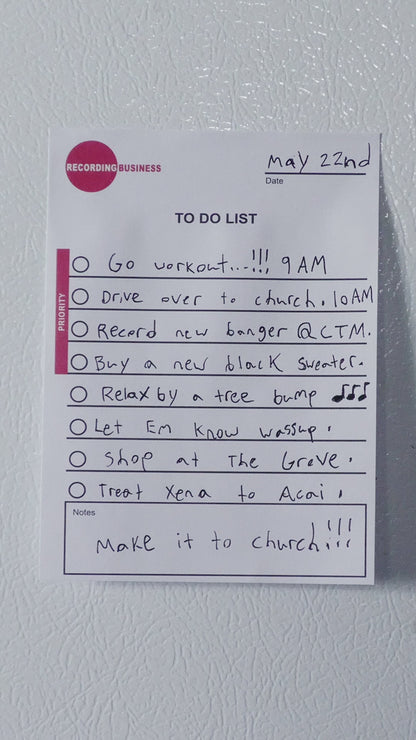 RECORDING BUSINESS
May 22nd
Date
TO DO LIST
PRIORITY
Go workout...!!! 9AM
Drive over to church. 10AM
Record new banger @CTM.
Buy a new black sweater.
Relax by a tree bump ♫♪♪
Let Em know wassup.
Shop at The Grove.
Treat Xena to Acai.
Notes
Make it to church!!!